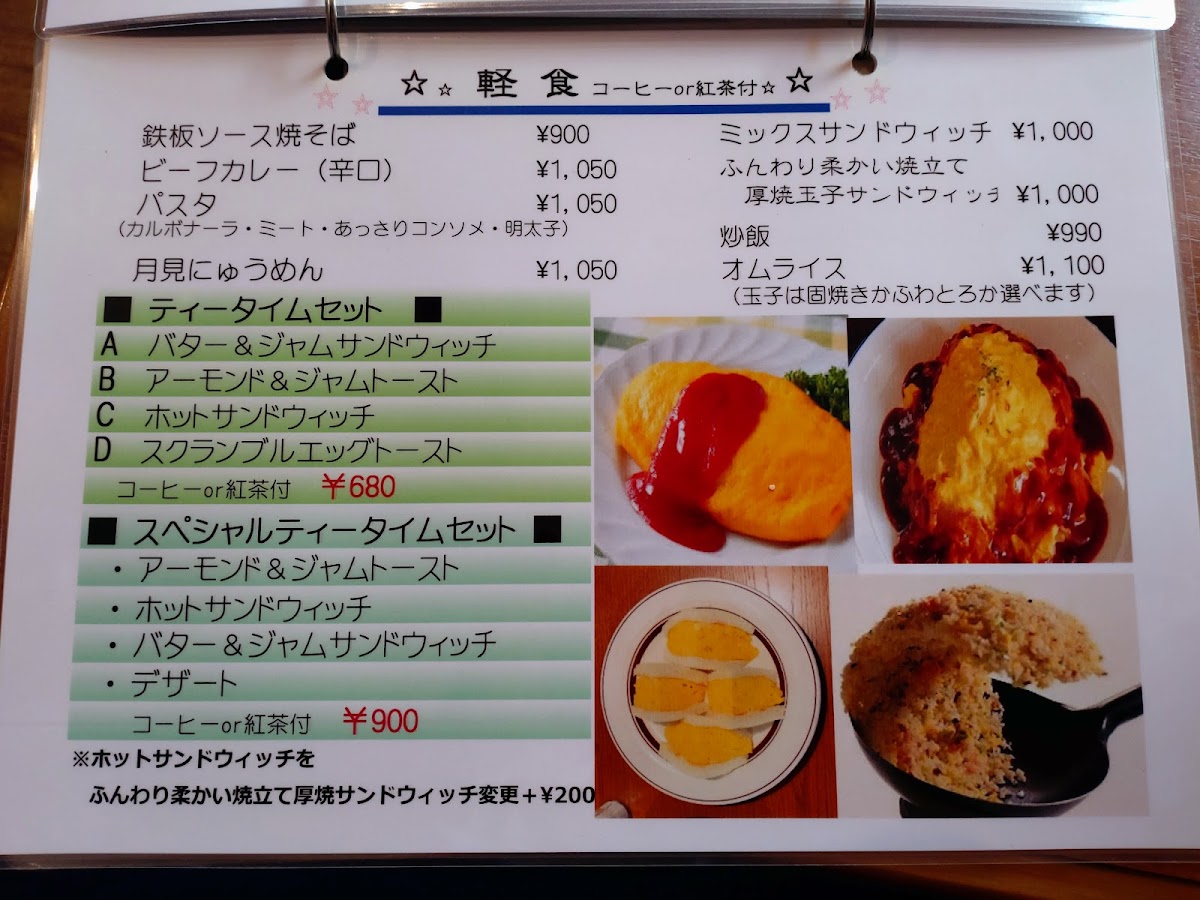 ☆☆ 軽食 コーヒーor紅茶付☆☆
鉄板ソース焼そば ¥900
ビーフカレー（辛口） ¥1,050
パスタ ¥1,050
（カルボナーラ・ミート・あっさりコンソメ・明太子）
月見にゅうめん ¥1,050
ミックスサンドウィッチ ¥1,000
ふんわり柔かい焼立て
厚焼玉子サンドウィッチ ¥1,000
炒飯 ¥990
オムライス ¥1,100
（玉子は固焼きかふわとろか選べます）
■ ティータイムセット ■
A バター＆ジャムサンドウィッチ
B アーモンド＆ジャムトースト
C ホットサンドウィッチ
D スクランブルエッグトースト
コーヒーor紅茶付 ￥680
■ スペシャルティータイムセット ■
・アーモンド＆ジャムトースト
・ホットサンドウィッチ
・バター＆ジャムサンドウィッチ
・デザート
コーヒーor紅茶付 ￥900
※ホットサンドウィッチを
ふんわり柔かい焼立て厚焼サンドウィッチ変更＋¥200